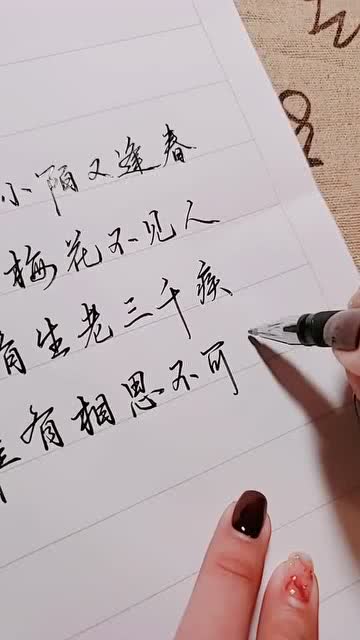 小陌又逢春
梅花不见人
有生老三千疾
有相思不可